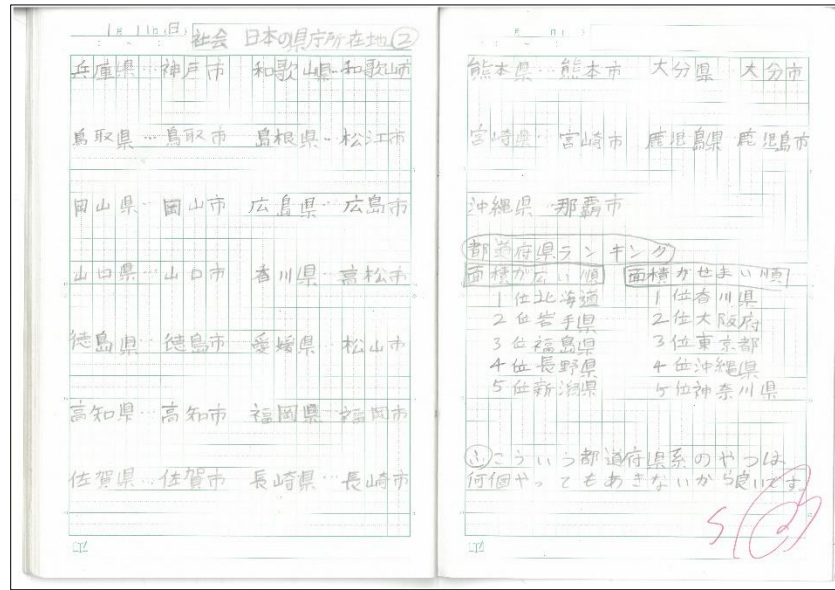 1月11日(日)
社会 日本の県庁所在地②
兵庫県…神戸市 和歌山県…和歌山市
鳥取県…鳥取市 島根県…松江市
岡山県…岡山市 広島県…広島市
山口県…山口市 香川県…高松市
徳島県…徳島市 愛媛県…松山市
高知県…高知市 福岡県…福岡市
佐賀県…佐賀市 長崎県…長崎市
月 日
熊本県…熊本市 大分県…大分市
宮崎県…宮崎市 鹿児島県…鹿児島市
沖縄県…那覇市
都道府県ランキング
面積が広い順 面積がせまい順
1位北海道 1位香川県
2位岩手県 2位大阪府
3位福島県 3位東京都
4位長野県 4位沖縄県
5位新潟県 5位神奈川県
ふこういう都道府県系のやつは
何個やってもあきないから良いです。
5